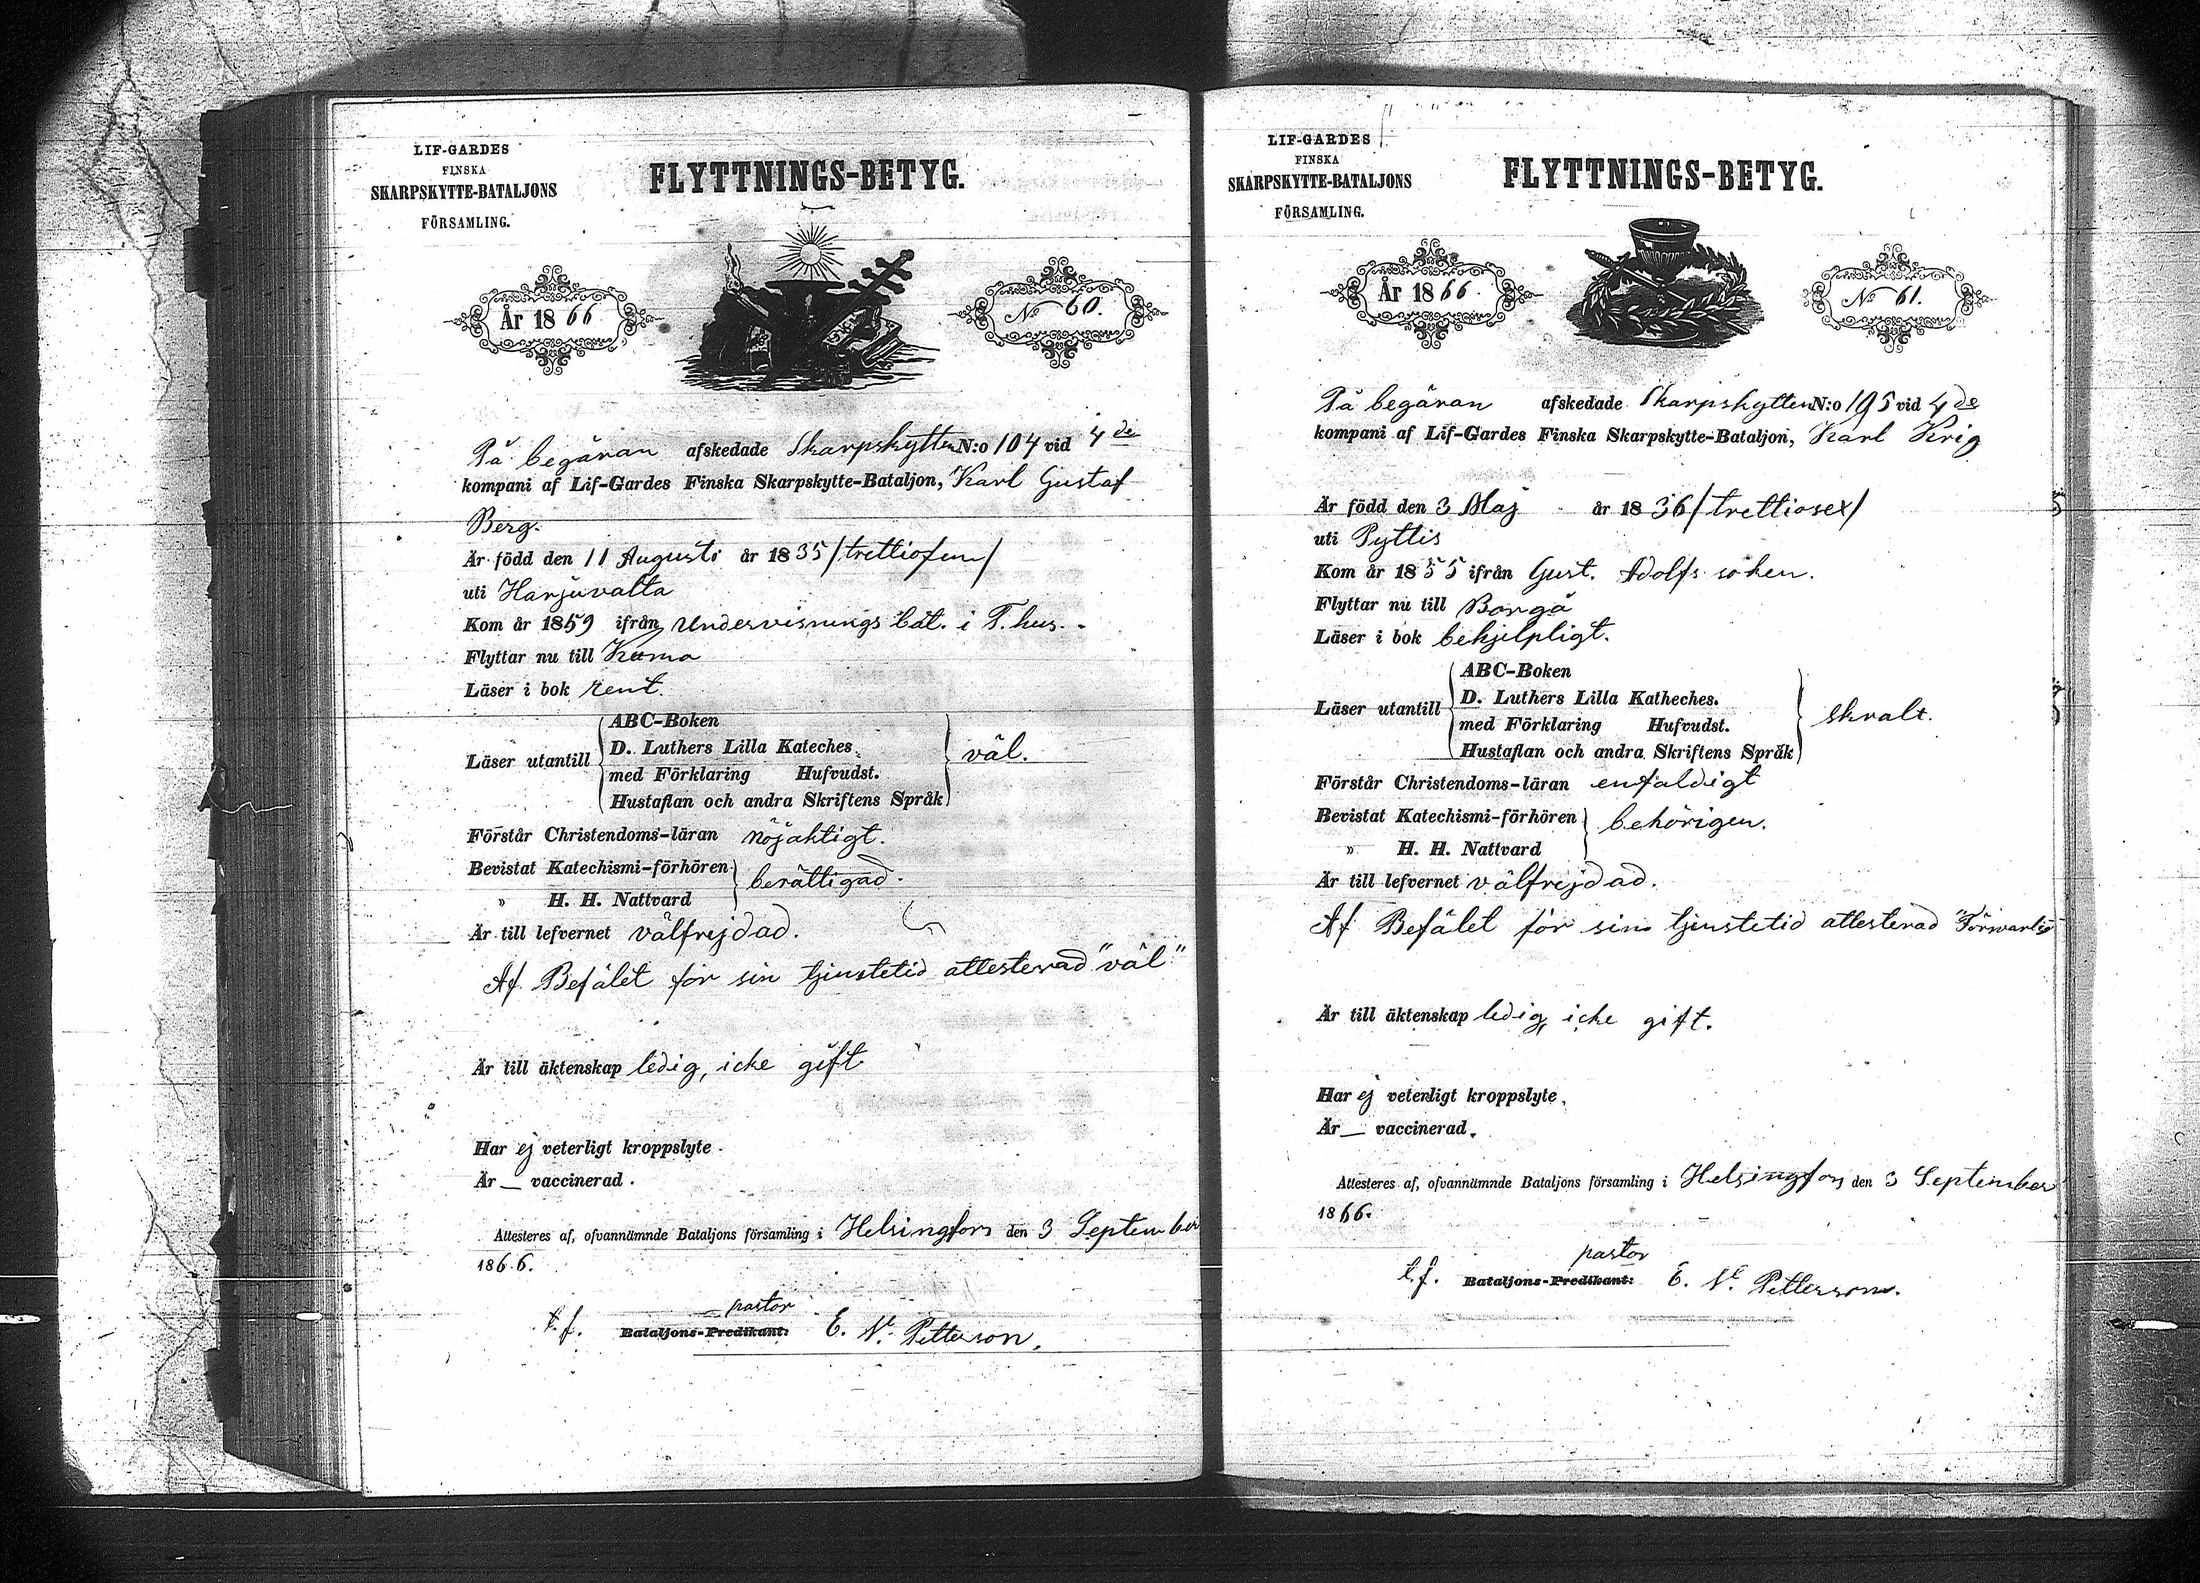 LIF-GARDES
FINSKA
SKARPSKYTTE-BATALJONS
FÖRSAMLING.
FLYTTNINGS-BETYG.
År 1866
No 60.
På begäran afskedade Skarpskytten N:o 104 vid 4de
kompani af Lif-Gardes Finska Skarpskytte-Bataljon, Karl Gustaf
Berg.
Är född den 11 Augusti år 1835 /trettiofem/
uti Harjuvalta
Kom år 1859 ifrån Undervisnings bat. i T.hus.
Flyttar nu till Kumo
Läser i bok rent.
Läser utantill
ABC-Boken
D. Luthers Lilla Kateches
med Förklaring Hufvudst.
Hustaflan och andra Skriftens Språk
väl.
Förstår Christendoms-läran nöjaktigt.
Bevistat Katechismi-förhören
" H. H. Nattvard
berättigad.
Är till lefvernet välfrejdad.
Af Befälet för sin tjenstetid attesterad "väl"
Är till äktenskap ledig, icke gift
Har ej veterligt kroppslyte.
Är — vaccinerad.
Attesteres af, ofvannämnde Bataljons församling i Helsingfors den 3 September
1866.
pastor
t.f. Bataljons-Predikant: E. N. Petterson.
LIF-GARDES
FINSKA
SKARPSKYTTE-BATALJONS
FÖRSAMLING.
FLYTTNINGS-BETYG.
År 1866.
No 61.
På begäran afskedade Skarpskytten N:o 195 vid 4de
kompani af Lif-Gardes Finska Skarpskytte-Bataljon, Karl Krig
Är född den 3 Maj år 1836 /trettiosex/
uti Pyttis
Kom år 1855 ifrån Gust. Adolfs soken.
Flyttar nu till Borgå
Läser i bok behjelpligt.
Läser utantill
ABC-Boken
D. Luthers Lilla Katheches.
med Förklaring Hufvudst.
Hustaflan och andra Skriftens Språk
skralt.
Förstår Christendoms-läran enfaldigt
Bevistat Katechismi-förhören
" H. H. Nattvard
behörigen.
Är till lefvernet välfrejdad.
Af Befälet för sin tjenstetid attesterad
Är till äktenskap ledig, icke gift.
Har ej veterligt kroppslyte.
Är — vaccinerad.
Attesteres af, ofvannämnde Bataljons församling i Helsingfors den 3 September
1866.
pastor
t.f. Bataljons-Predikant: E. N. Petterson.